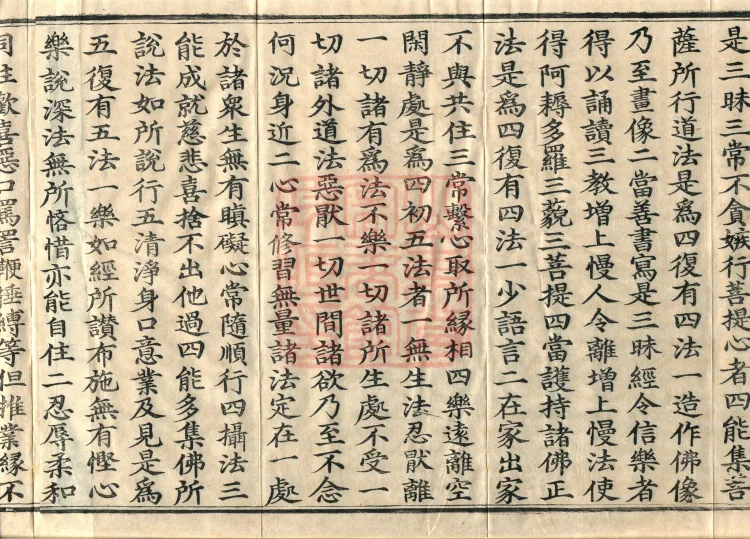 是三昧三常不貪嫉行菩提心者四能集菩
薩所行道法是爲四復有四法一造作佛像
乃至畫像二當善書寫是三昧經令信樂者
得以誦讀三教增上慢人令離增上慢法使
得阿耨多羅三藐三菩提四當護持諸佛正
法是爲四復有四法一少語言二在家出家
不與共住三常繫心取所縁相四樂遠離空
閑靜處是爲四初五法者一無生法忍厭離
一切諸有爲法不樂一切諸所生處不受一
切諸外道法惡厭一切世間諸欲乃至不念
何況身近二心常修習無量諸法定在一處
於諸衆生無有瞋礙心常隨順行四攝法三
能成就慈悲喜捨不出他過四能多集佛所
說法如所說行五清淨身口意業及見是爲
五復有五法一樂如經所讃布施無有慳心
樂說深法無所悋惜亦能自住二忍辱柔和
同住歡喜惡口罵詈鞭捶縛等但推業縁不